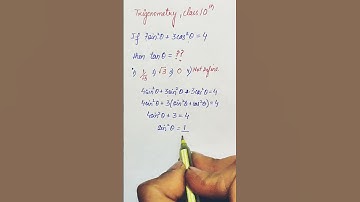 Trigonometry, class 10th
If 7sin²θ + 3cos²θ = 4
then tanθ = ??
1) 1/√3 2) √3 3) 0 4) Not Define
4sin²θ + 3sin²θ + 3cos²θ = 4
4sin²θ + 3(sin²θ + cos²θ) = 4
4sin²θ + 3 = 4
sin²θ = 1